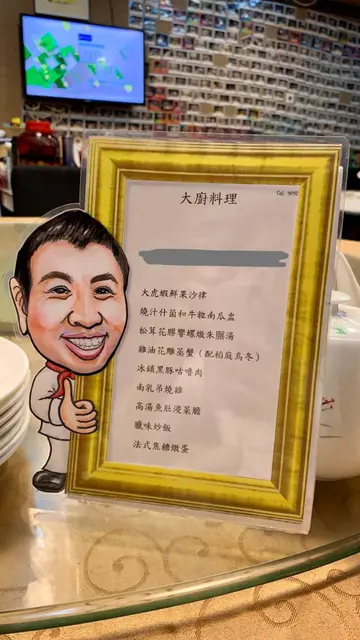 大廚料理
大虎蝦鮮果沙律
燒汁什菌和牛粒南瓜盅
松茸花膠響螺燉朱𦟌湯
雞油花雕蒸蟹（配稻庭烏冬）
冰鎮黑豚咕嚕肉
南乳吊燒雞
高湯魚肚浸菜膽
臘味炒飯
法式焦糖燉蛋